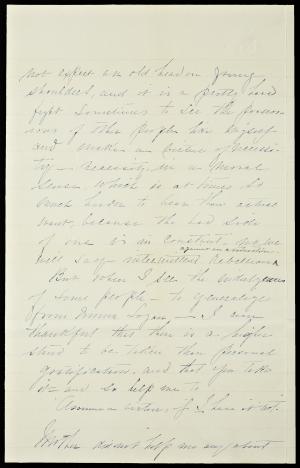 not expect an old head on young
shoulders, and it is a pretty hard
fight sometimes to see the
of other people
and make a virtue of necessi-
ty – necessity in a moral
sense, which is at times so
much harder to bear than actual
want, because the bad side
of one is in constant, we
will say intermittent rebellion
against
But when I see the indulgences
of some people – to generalize
from Logan, – I am
thankful that there is a higher
stand to be taken than personal
gratification, and that you take
it – and so help me to
"Assume a virtue, if I have it not."
Mother did not help me any about